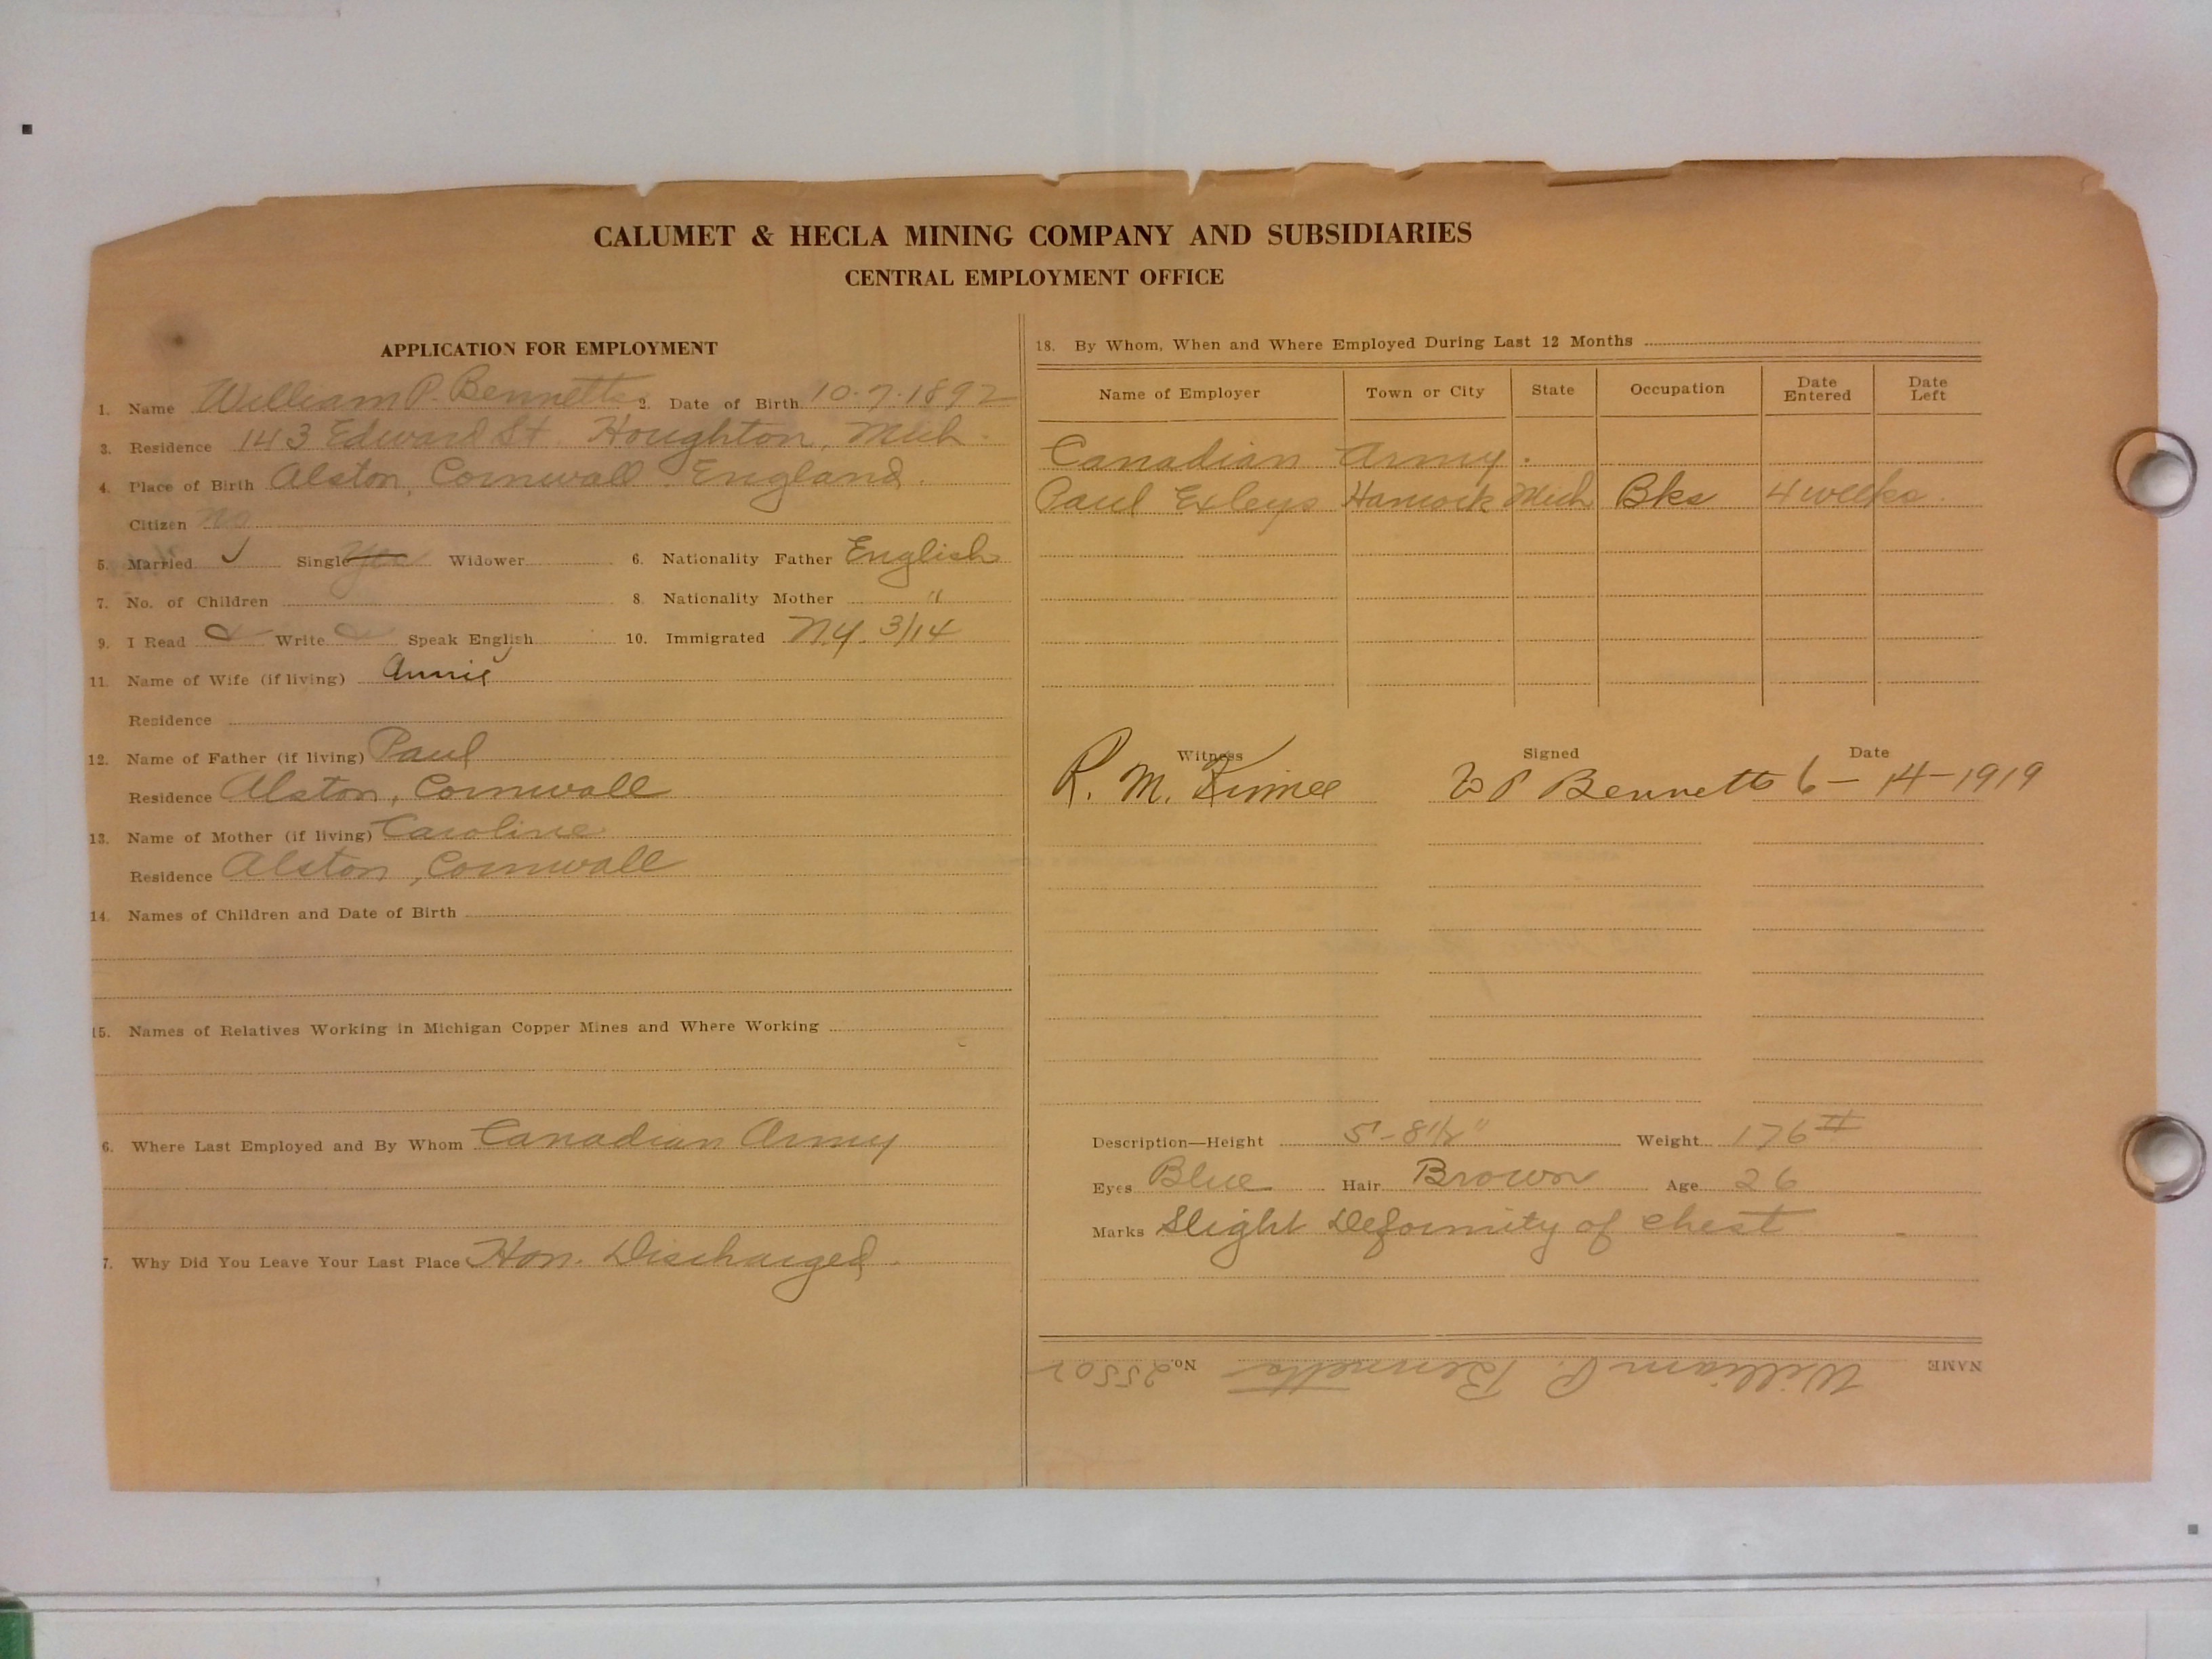 CALUMET & HECLA MINING COMPANY AND SUBSIDIARIES
CENTRAL EMPLOYMENT OFFICE
APPLICATION FOR EMPLOYMENT
1. Name William P. Bennetts 2. Date of Birth 10.7.1892
3. Residence 143 Edward St. Houghton, Mich.
4. Place of Birth Alston, Cornwall England.
Citizen No
5. Married ✓ Single Yes Widower
6. Nationality Father English
7. No. of Children
8. Nationality Mother "
9. I Read Write Speak English
10. Immigrated N.Y. 3/14
11. Name of Wife (if living) Annie
Residence
12. Name of Father (if living) Paul
Residence Alston, Cornwall
13. Name of Mother (if living) Caroline
Residence Alston, Cornwall
14. Names of Children and Date of Birth
15. Names of Relatives Working in Michigan Copper Mines and Where Working
6. Where Last Employed and By Whom Canadian Army
7. Why Did You Leave Your Last Place Hon. Discharged.
18. By Whom, When and Where Employed During Last 12 Months
Name of Employer Town or City State Occupation Date Entered Date Left
Canadian Army.
Paul Exleys Hancock Mich Bks 4 weeks.
Witness Signed Date
R. M. W P Bennetts 6-14-1919
Description—Height 5'-8 1/2" Weight 176 #
Eyes Blue Hair Brown Age 26
Marks Slight Deformity of chest
NAME William P. Bennetts No. 25502